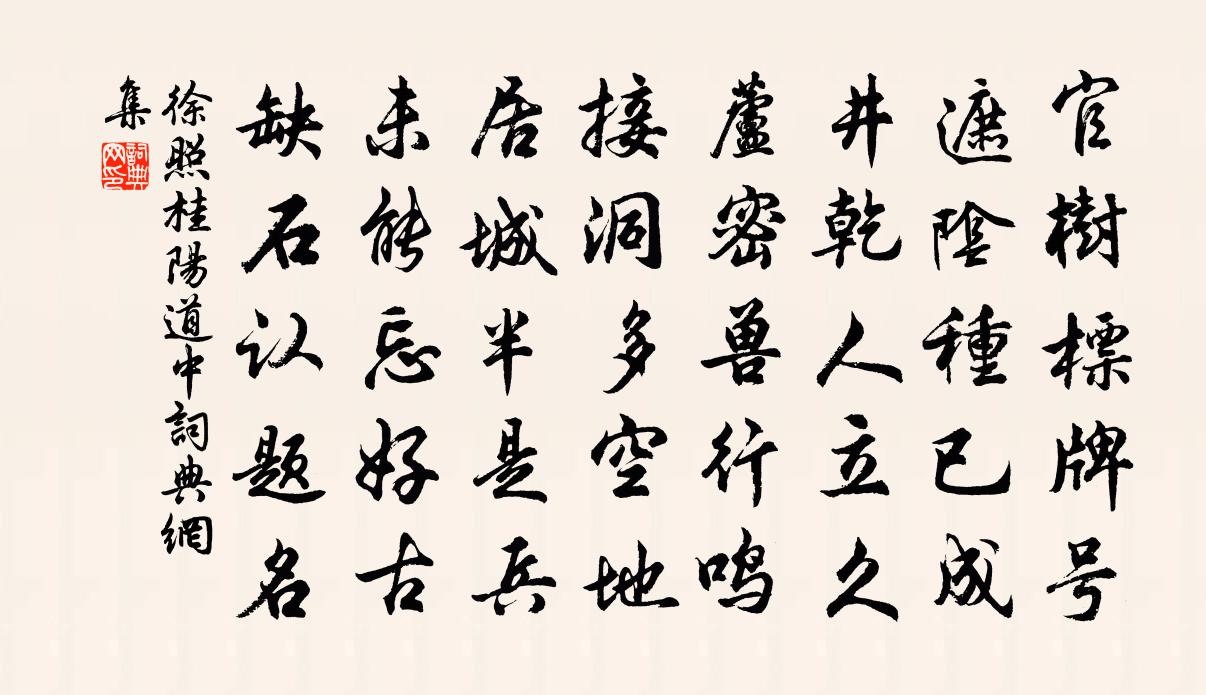 官樹標牌号
遮陰種已成
井乾人立久
蘆密兽行鸣
接洞多空地
居城半是兵
未能忘好古
缺石认题名
徐照桂陽道中詞典網
集
詞典
网印